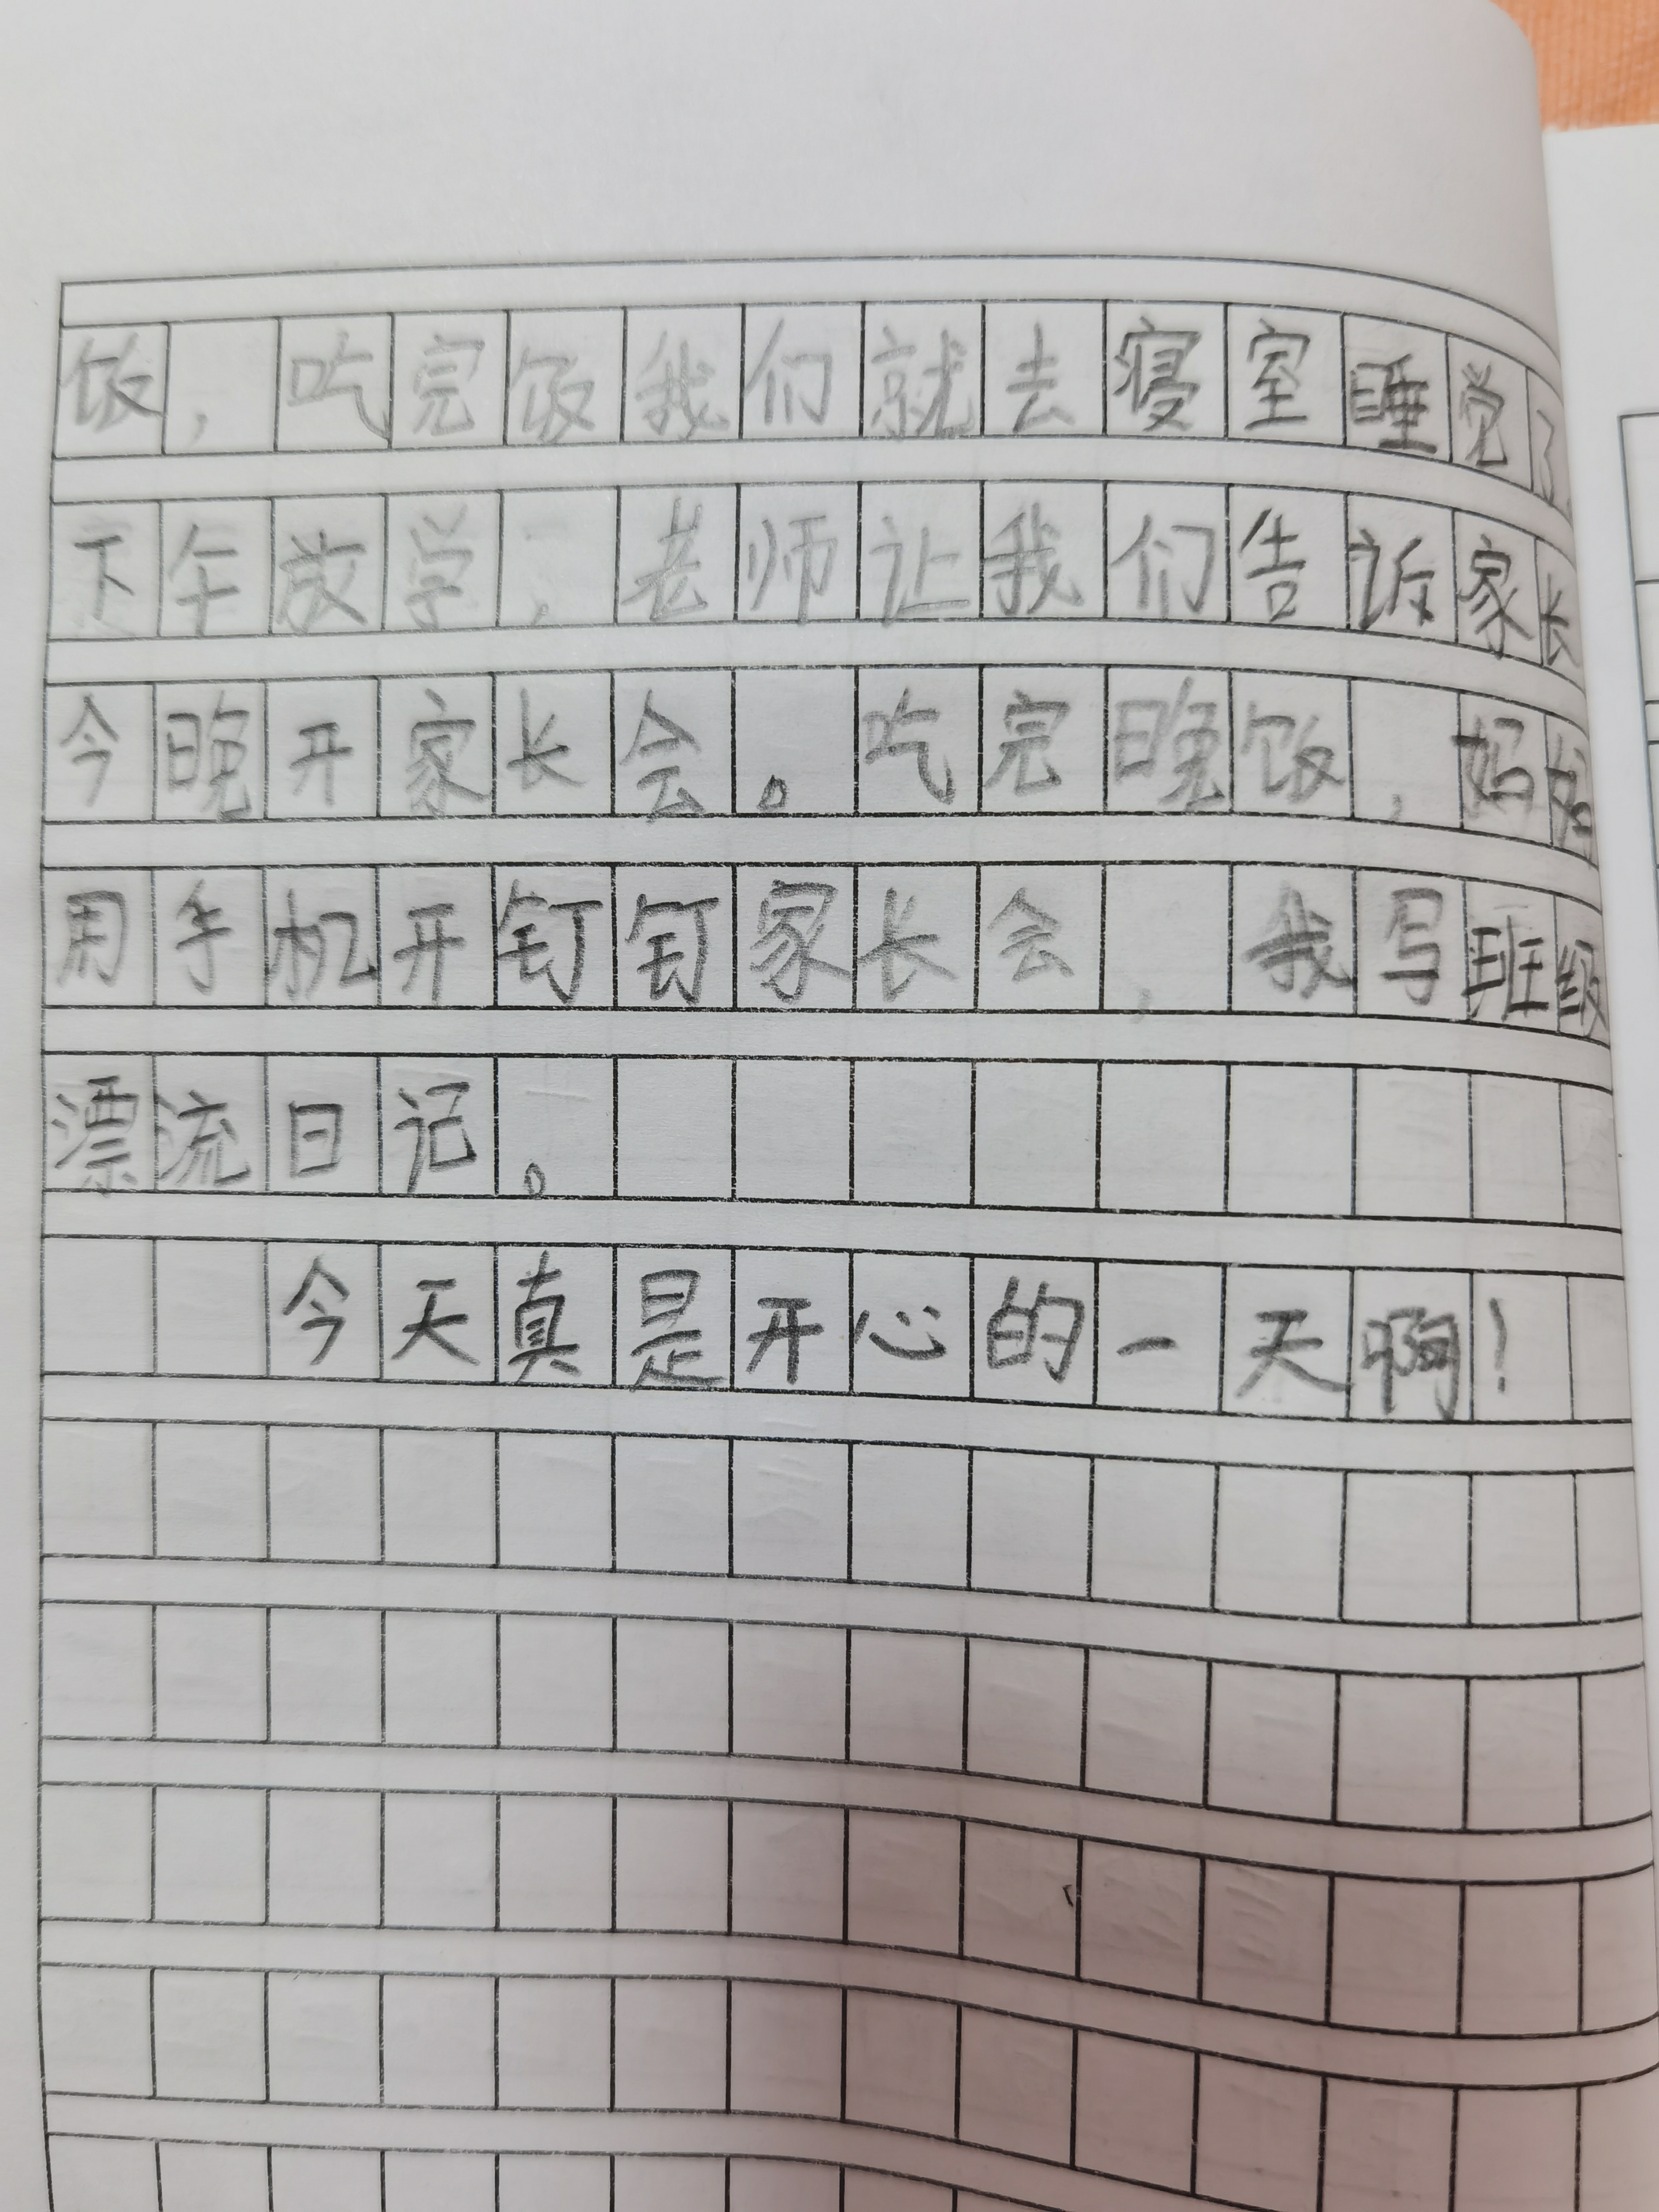 饭，吃完饭我们就去寝室睡觉了
下午放学，老师让我们告诉家长
今晚开家长会。吃完晚饭，妈妈
用手机开钉钉家长会，我写班级
漂流日记。
今天真是开心的一天啊！